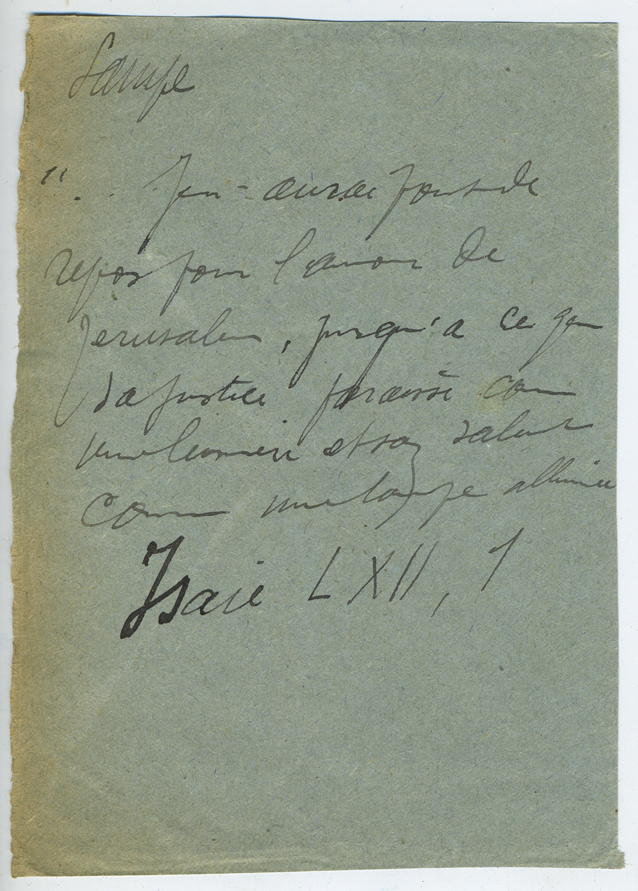 Lampe
".. Je n'aurai point de
repos pour l'amour de
Jerusalem, jusqu'a ce que
sa justice paraisse comme
une lumiere et son salut
comme une lampe allumée
Isaie LXII, 1